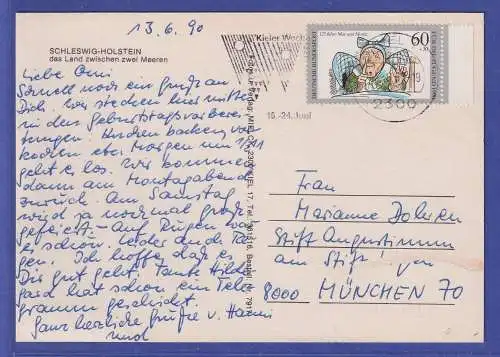 13.6.90
SCHLESWIG-HOLSTEIN
das Land zwischen zwei Meeren
Liebe Omi
Schnell noch ein Gruß an
Dich. Wir stecken hier mitten
in den Geburtstagsvorberei
tungen. Kuchen backen, vor
kochen etc. Morgen um
geht es los. Wir kommen
dann am Montagabend
zurück. Am Samstag
wird ja nochmal groß
gefeiert – Auf Rügen war
es schön. Leider an die Ta
gen. Ich hoffe, daß es
Dir gut geht. Tante Hilde
gard hat schon ein Tele
gramm geschickt.
Ganz herzliche Grüße v.
und
Kieler Woche
16.-24. Juni
2300
125 Jahre Max und Moritz
60
DEUTSCHE BUNDESPOST
Frau
Marianne
Stift Augustinum
am Stift
8000 MÜNCHEN 70